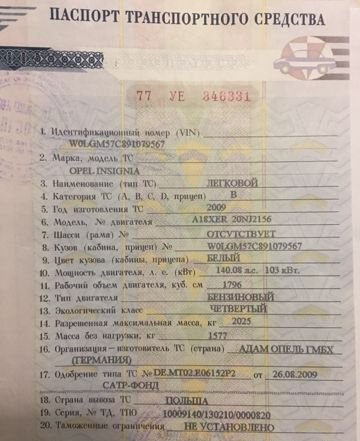 ПАСПОРТ ТРАНСПОРТНОГО СРЕДСТВА
77 УЕ 346331
1. Идентификационный номер (VIN)
W0LGM57C891079567
2. Марка, модель ТС
OPEL INSIGNIA
3. Наименование (тип ТС) ЛЕГКОВОЙ
4. Категория ТС (А, В, С, D, прицеп) В
5. Год изготовления ТС 2009
6. Модель, № двигателя A18XER 20NJ2156
7. Шасси (рама) № ОТСУТСТВУЕТ
8. Кузов (кабина, прицеп) № W0LGM57C891079567
9. Цвет кузова (кабины, прицепа) БЕЛЫЙ
10. Мощность двигателя, л. с. (кВт) 140.08 л.с. 103 кВт.
11. Рабочий объем двигателя, куб. см 1796
12. Тип двигателя БЕНЗИНОВЫЙ
13. Экологический класс ЧЕТВЕРТЫЙ
14. Разрешенная максимальная масса, кг 2025
15. Масса без нагрузки, кг 1577
16. Организация – изготовитель ТС (страна) АДАМ ОПЕЛЬ ГМБХ
(ГЕРМАНИЯ)
17. Одобрение типа ТС № DE.MT02.E06152P2 от 26.08.2009
САТР-ФОНД
18. Страна вывоза ТС ПОЛЬША
19. Серия, № ТД, ТПО 10009140/130210/0000820
20. Таможенные ограничения НЕ УСТАНОВЛЕНО